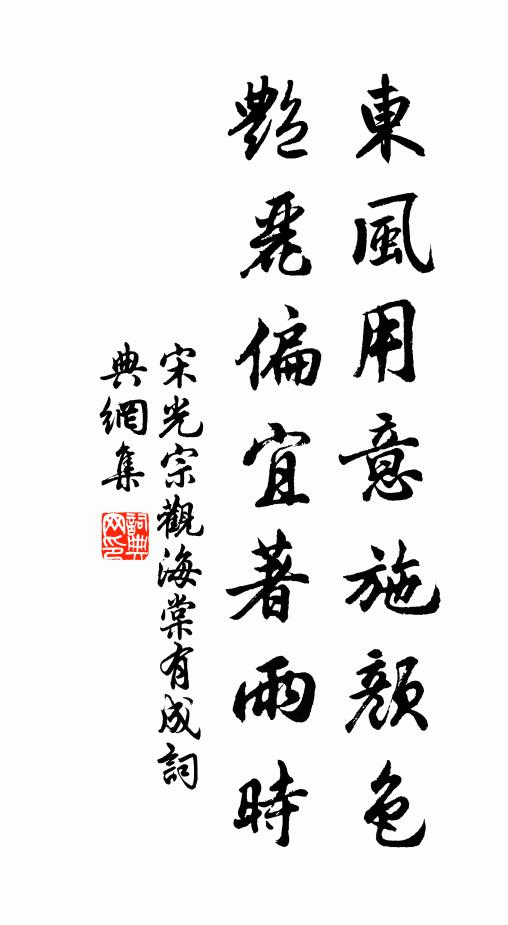 東風用意施顔色
艷麗偏宜著雨時
宋光宗觀海棠有成詞
典網集
詞典
网印